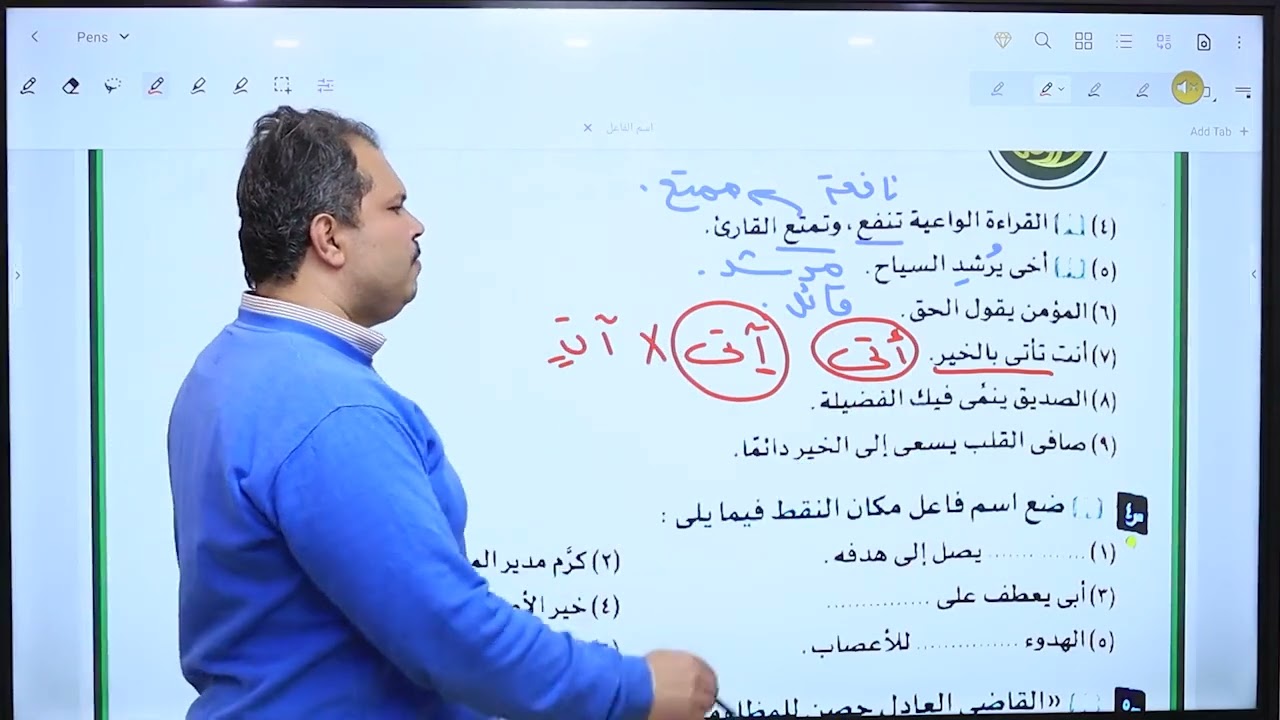 Pens
Add Tab +
اسم الفاعل ×
نافعة ممتع.
(٤) القراءة الواعية تنفع، وتمتع القارئ.
(٥) أخى يُرشدِ السياح. مرشد.
(٦) المؤمن يقول الحق. قائل.
(٧) أنت تأتى بالخير. أتى آتى × آتٍ
(٨) الصديق ينمُى فيك الفضيلة.
(٩) صافى القلب يسعى إلى الخير دائمًا.
ضع اسم فاعل مكان النقط فيما يلى :
(١) ............ يصل إلى هدفه.
(٢) كرَّم مدير
(٣) أبى يعطف على ..............
(٤) خير
(٥) الهدوء .............. للأعصاب.
«القاضى العادل حصن